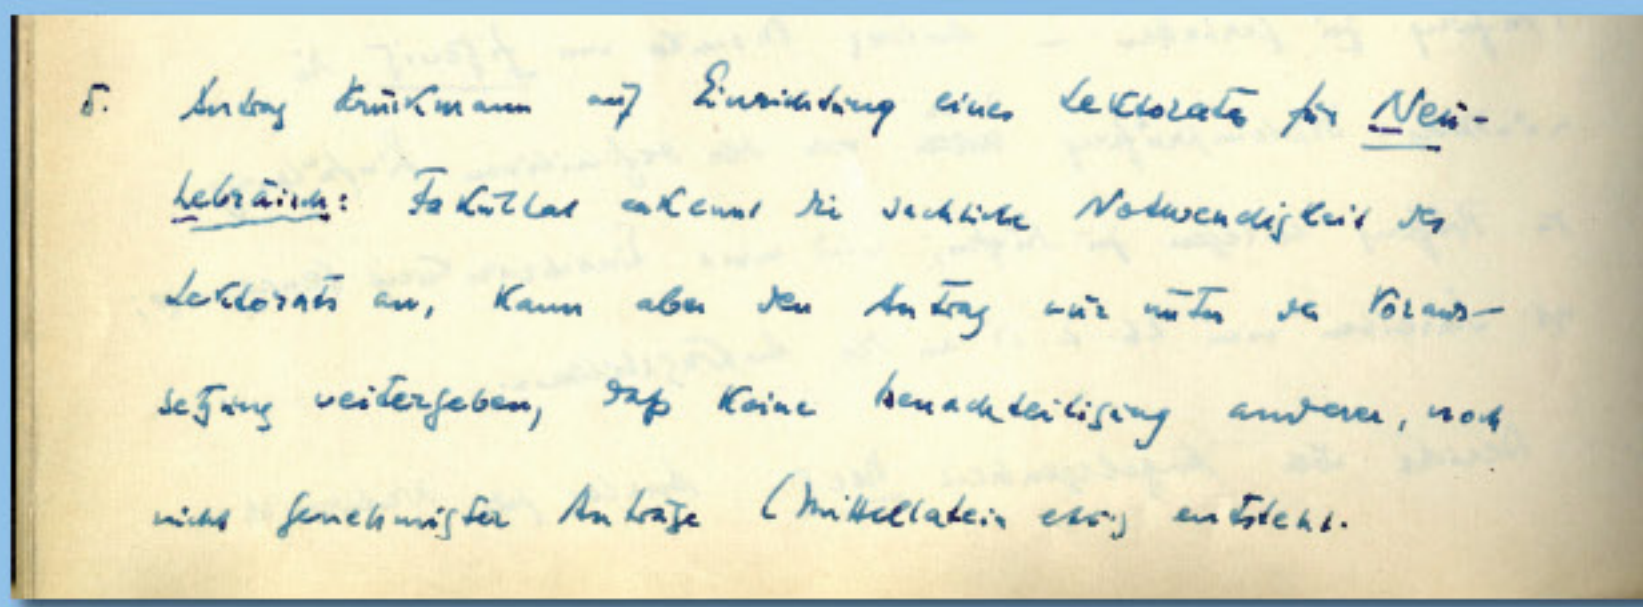 5. Antrag Krückmann auf Einrichtung eines Lektorates für Neu-
hebräisch: Fakultät erkennt die sachliche Notwendigkeit des
Lektorats an, kann aber den Antrag nur unter der Voraus-
setzung weitergeben, daß keine Benachteiligung anderer, noch
nicht genehmigter Anträge (Mittellatein entsteht.